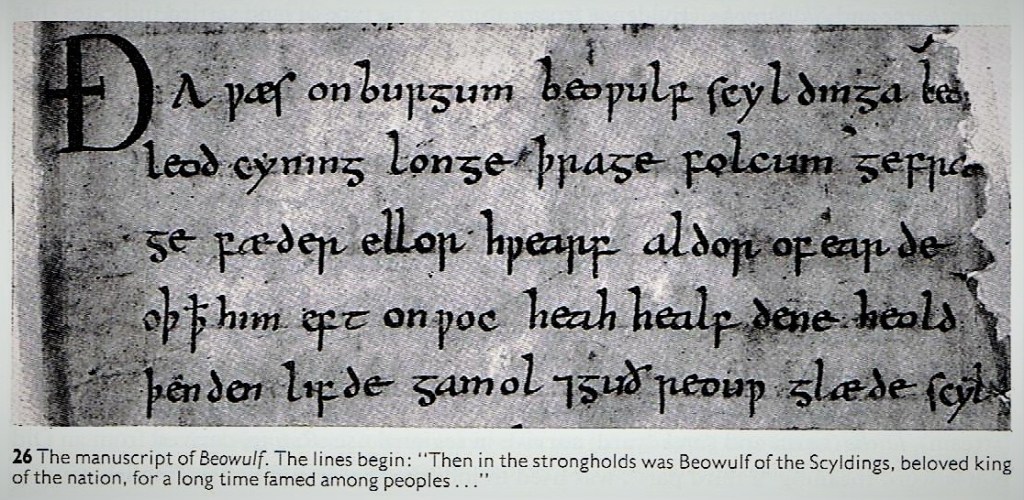 ÐA ƿæs onburgum beoƿulf scyldinga leo
leod cyning longe þrage folcum gefræ
ge fæder ellor hƿearf aldor of earde
oþþ̄ him eft onƿoc heah healfdene heold
þenden lifde gamol ⁊guðreouƿ glæde scyl
26 The manuscript of Beowulf. The lines begin: "Then in the strongholds was Beowulf of the Scyldings, beloved king
of the nation, for a long time famed among peoples ..."